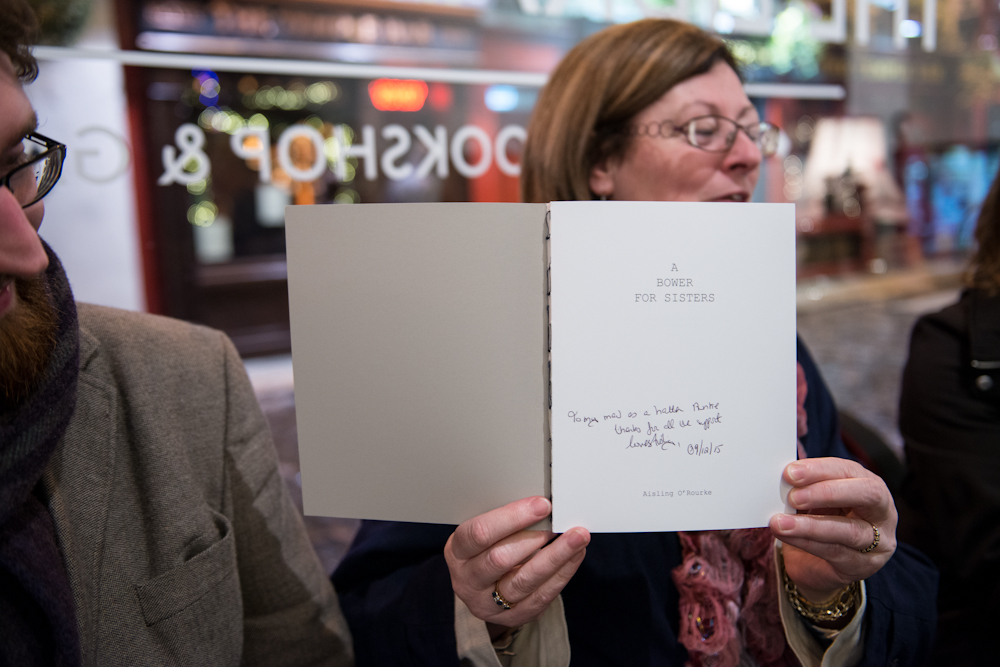 BOOKSHOP & G
A
BOWER
FOR SISTERS
To my mad as a hatter
thanks for all the support
09/12/15
Aisling O'Rourke